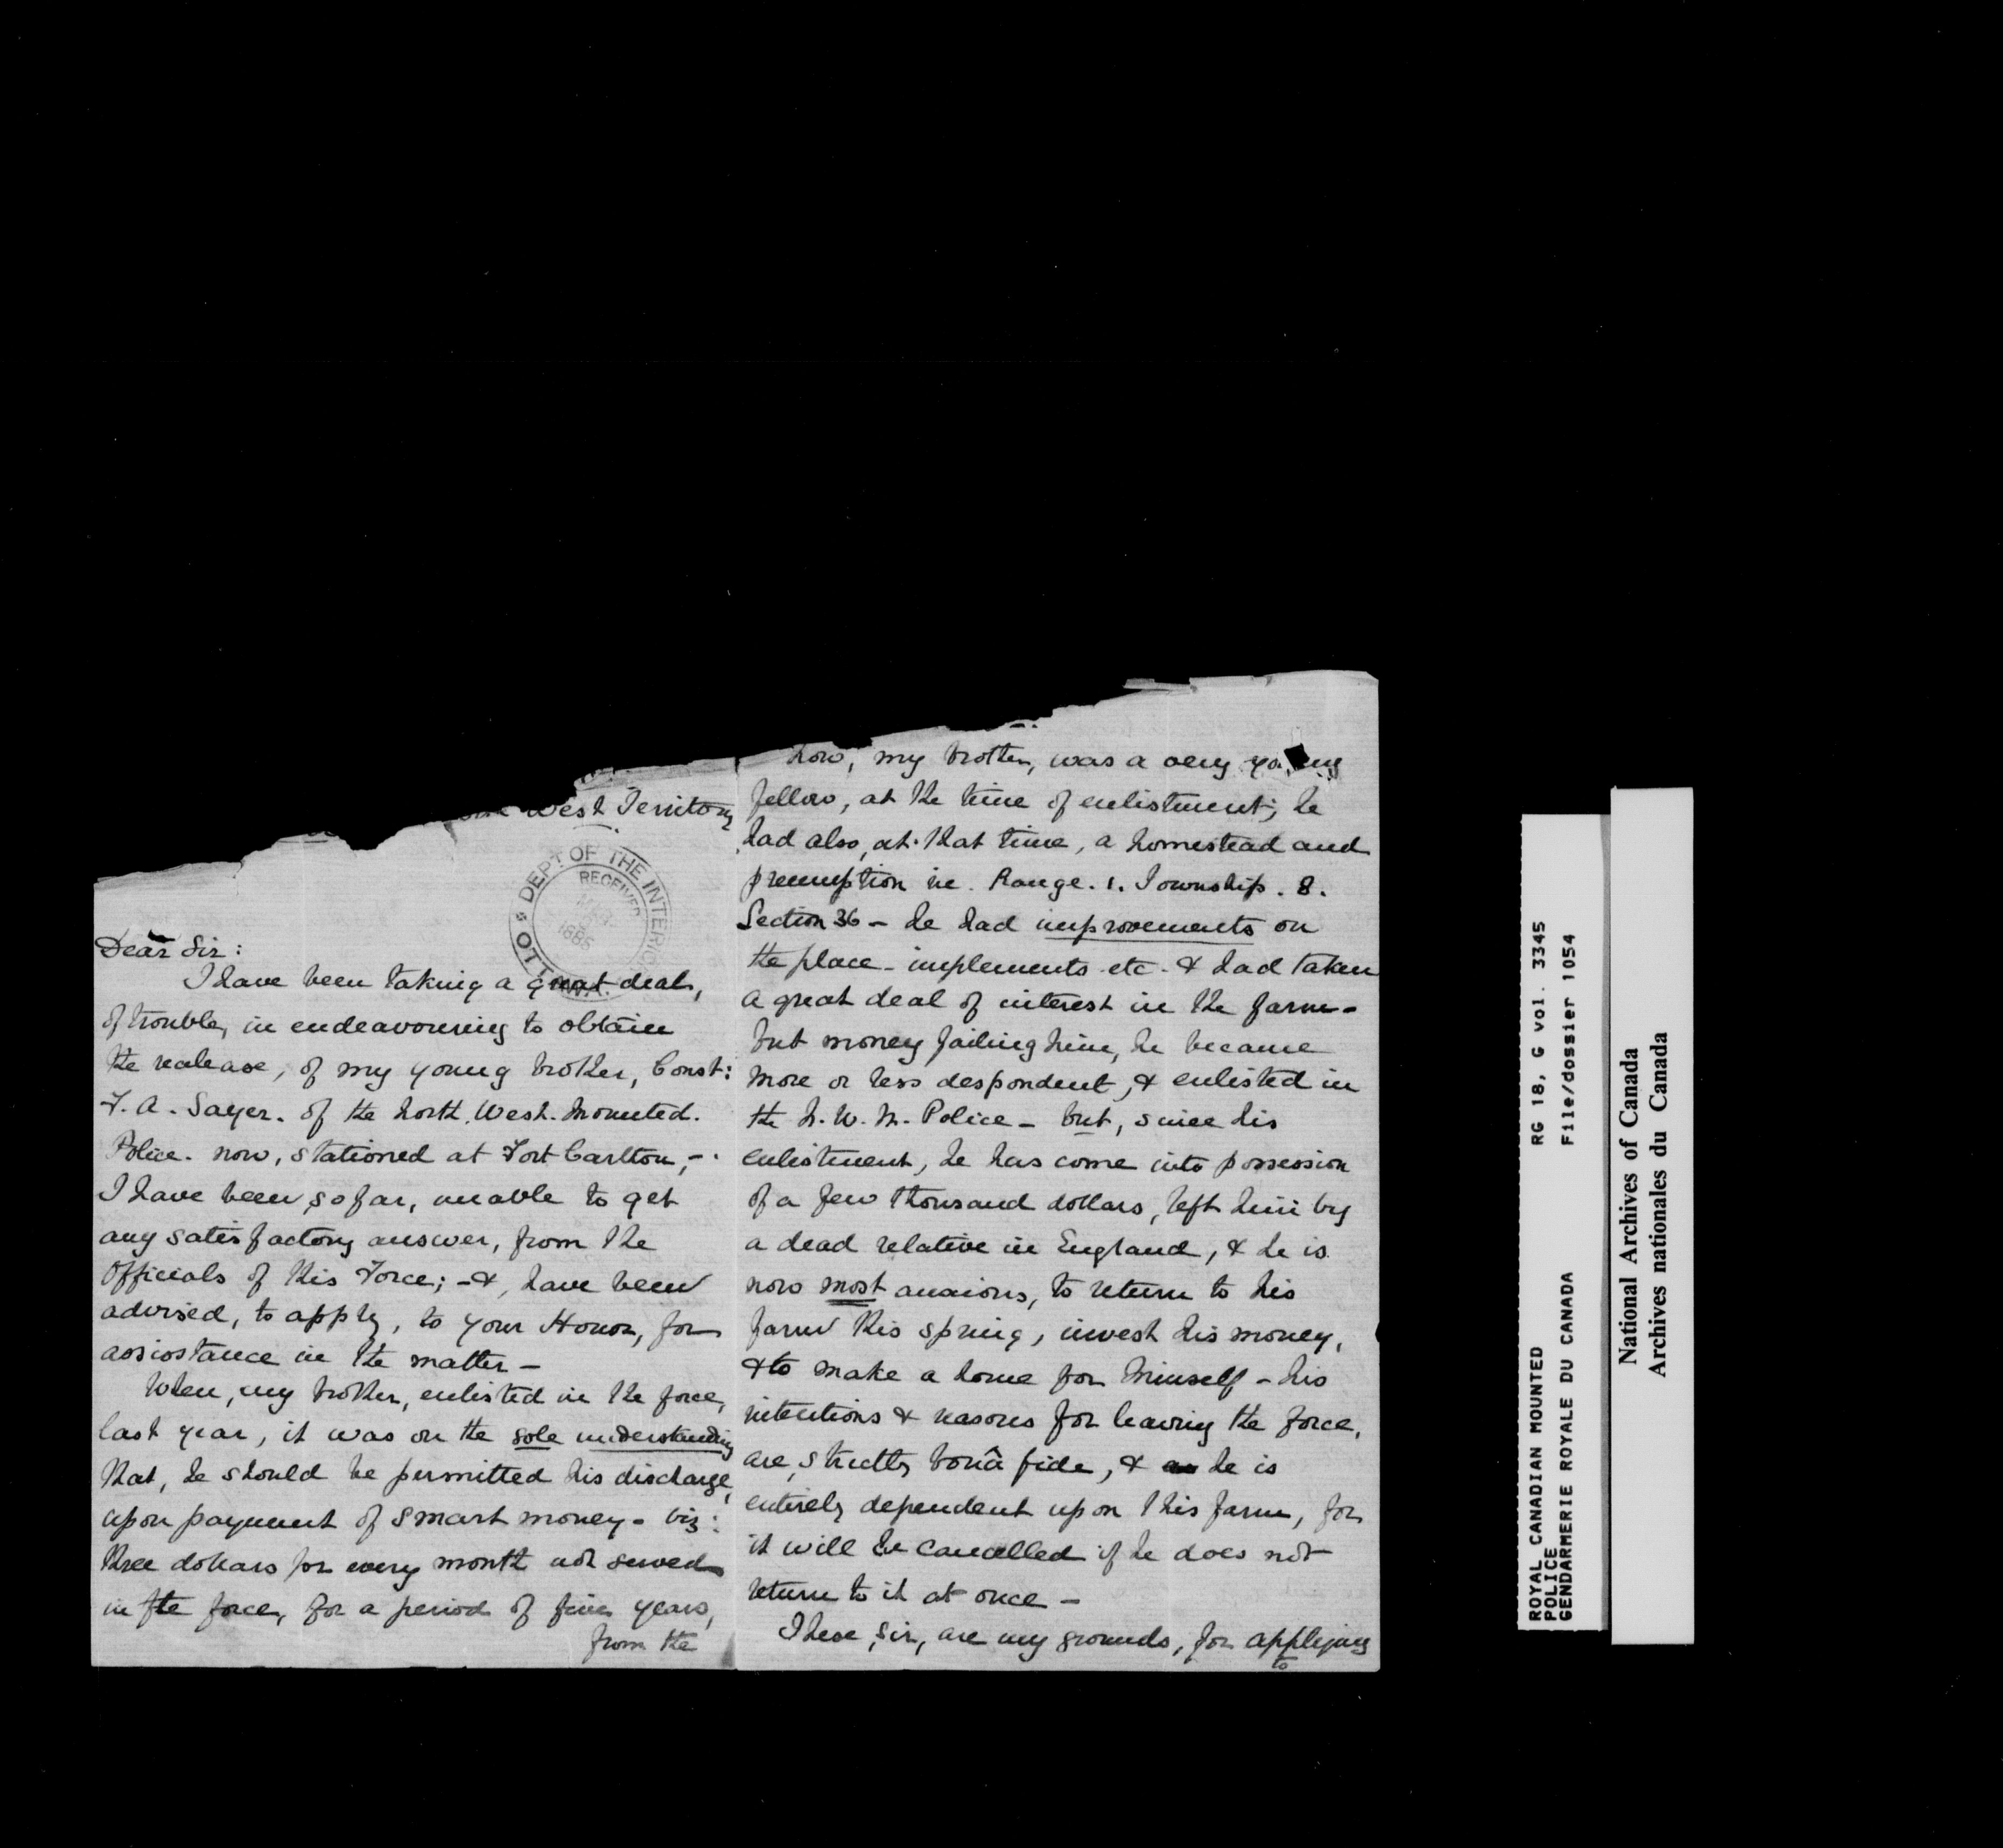 West Territory
DEPT OF THE INTERIOR
RECEIVED
1885
OTTAWA.
Dear Sir:
I have been taking a great deal,
of trouble, in endeavouring to obtain
the release, of my young brother, Const:
F. A. Sayer. of the North. West. Mounted.
Police. now, stationed at Fort Carlton, -.
I have been, so far, unable to get
any satisfactory answer, from the
Officials of this Force; - &, have been
advised, to apply, to your Honor, for
assistance in the matter -
When, my brother, enlisted in the force,
last year, it was on the sole understanding
that, he should be permitted his discharge,
upon payment of smart money - viz:
three dollars for every month not served
in the force, for a period of five years,
from the
Now, my brother, was a very young
fellow, at the time of enlistment; he
had also, at that time, a homestead and
preemption in. Range. 1. Township. 8.
Section 36 - he had improvements on
the place - implements etc - & had taken
a great deal of interest in the farm -
but money failing him, he became
more or less despondent, & enlisted in
the N. W. M. Police - but, since his
enlistment, he has come into possession
of a few thousand dollars, left him by
a dead relative in England, & he is
now most anxious, to return to his
farm this spring, invest his money,
& to make a home for himself - his
intentions & reasons for leaving the force,
are, strictly bonâ fide, & he is
entirely dependent upon this farm, for
it will be cancelled if he does not
return to it at once -
These, Sir, are my grounds, for applying
to
ROYAL CANADIAN MOUNTED RG 18, G vol. 3345
POLICE
GENDARMERIE ROYALE DU CANADA File/dossier 1054
National Archives of Canada
Archives nationales du Canada